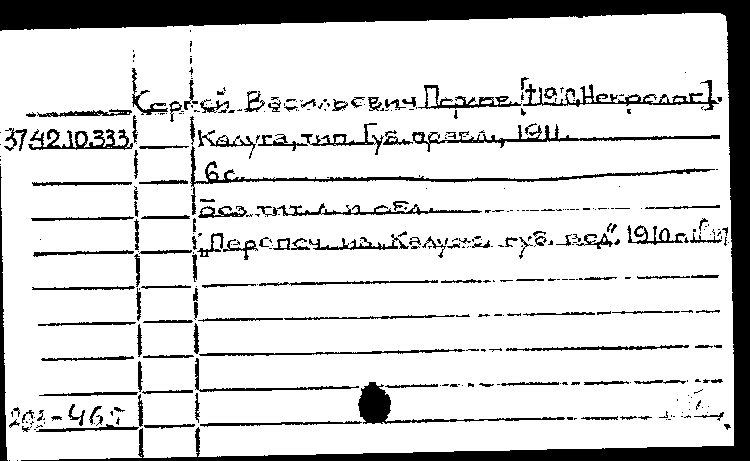 Сергей Васильевич Перлов. [†1910. Некролог].
37.42.10.333. Калуга, тип. Губ. правл., 1911.
6 с.
Без тит. л. и обл.
„Перепеч. из „Калужс. губ. вед“. 1910 г.
203-465